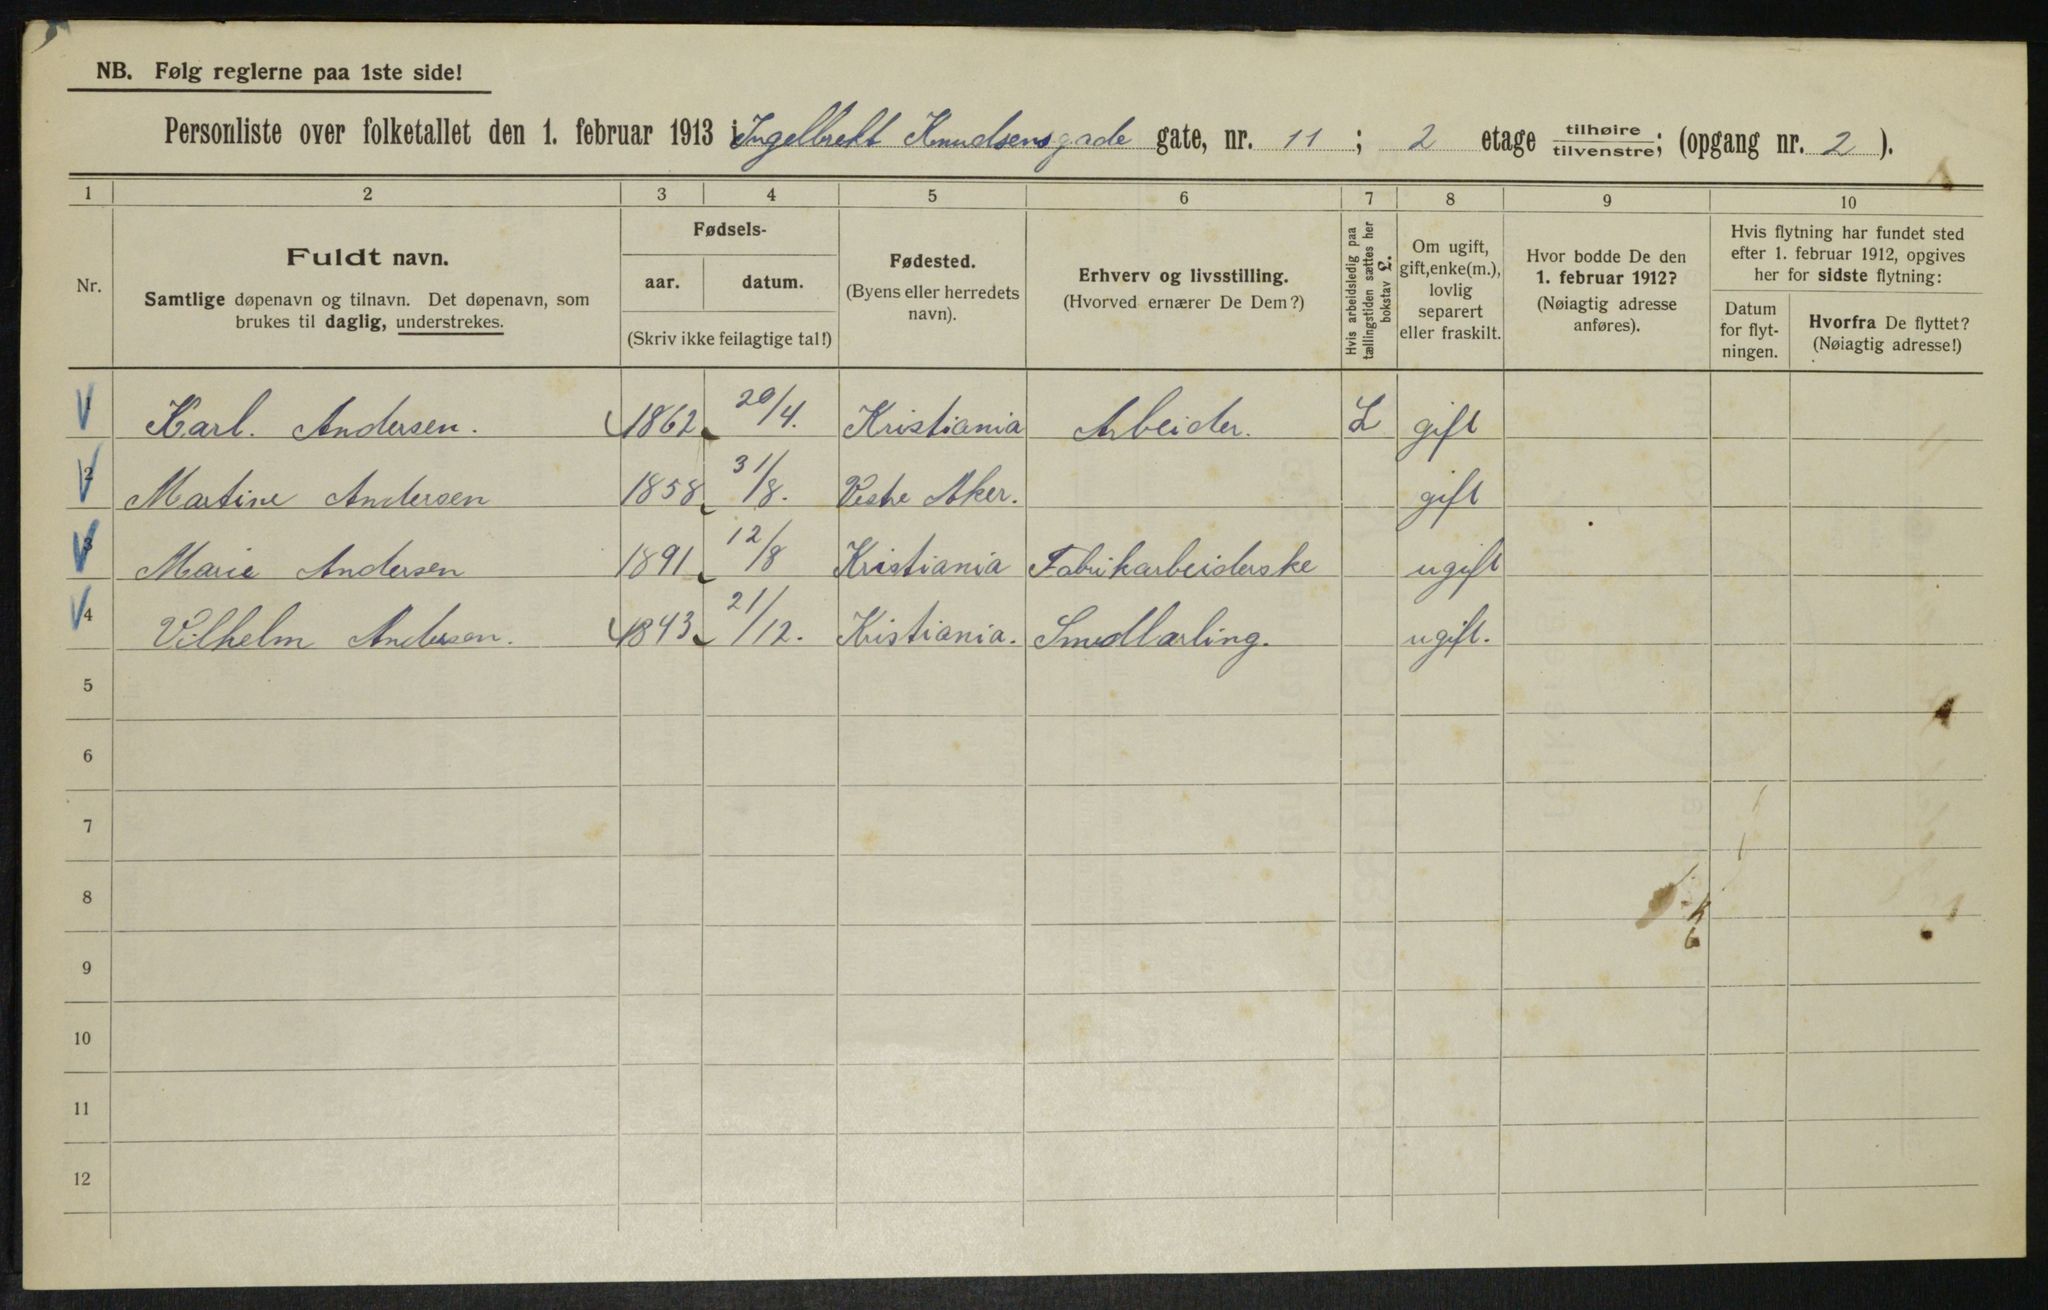 NB. Følg reglerne paa 1ste side!
Personliste over folketallet den 1. februar 1913 i Ingelbrekt Knudsensgade gate, nr. 11 ; 2 etage tilhøire / tilvenstre; (opgang nr. 2 ).
1 2 3 4 5 6 7 8 9 10
Nr.
Fuldt navn.
Samtlige døpenavn og tilnavn. Det døpenavn, som
brukes til daglig, understrekes.
Fødsels-
aar. datum.
(Skriv ikke feilagtige tal!)
Fødested.
(Byens eller herredets
navn).
Erhverv og livsstilling.
(Hvorved ernærer De Dem?)
Hvis arbeidsledig paa
tællingstiden sættes her
bokstav L.
Om ugift,
gift, enke(m.),
lovlig
separert
eller fraskilt.
Hvor bodde De den
1. februar 1912?
(Nøiagtig adresse
anføres).
Hvis flytning har fundet sted
efter 1. februar 1912, opgives
her for sidste flytning:
Datum
for flyt-
ningen.
Hvorfra De flyttet?
(Nøiagtig adresse!)
1 Karl. Andersen. 1862 20/4. Kristiania Arbeider. L gift
2 Martine Andersen 1858 31/8. Vestre Aker. gift
3 Marie Andersen 1891 12/8 Kristiania Fabrikarbeiderske ugift
4 Vilhelm Andersen. 1843 21/12. Kristiania. Smedlærling. ugift.
5
6
7
8
9
10
11
12